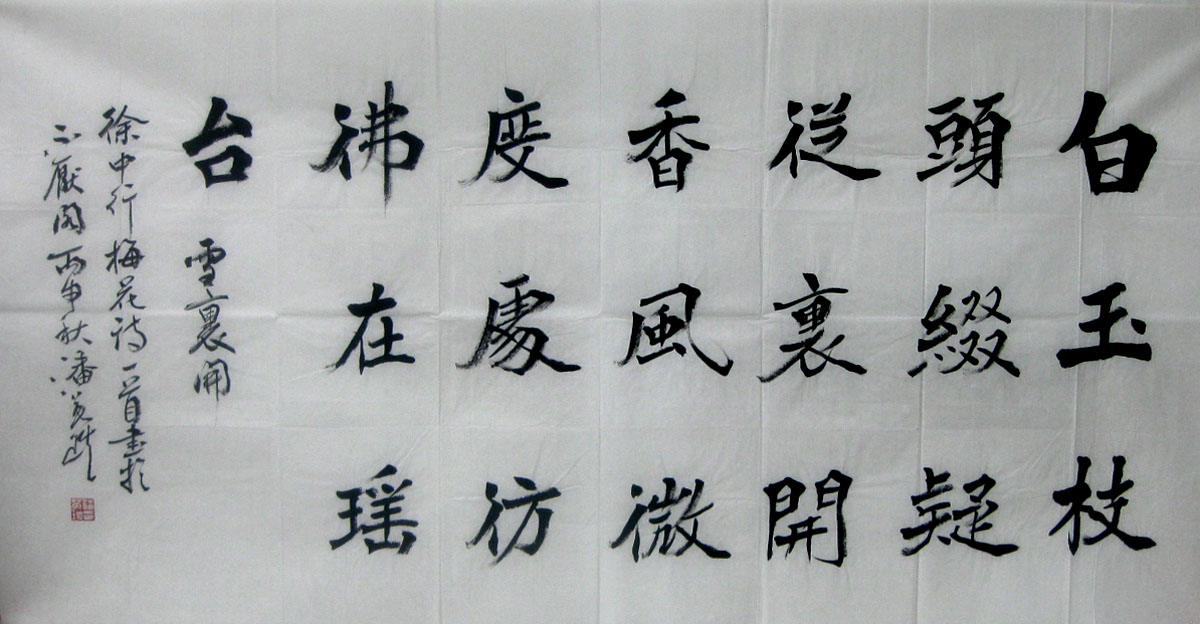 白玉枝
頭綴疑
從裏開
香風微
度處彷
彿在瑶
台 雪裏開
徐中行梅花詩一首書於
不厭閣丙申秋潘